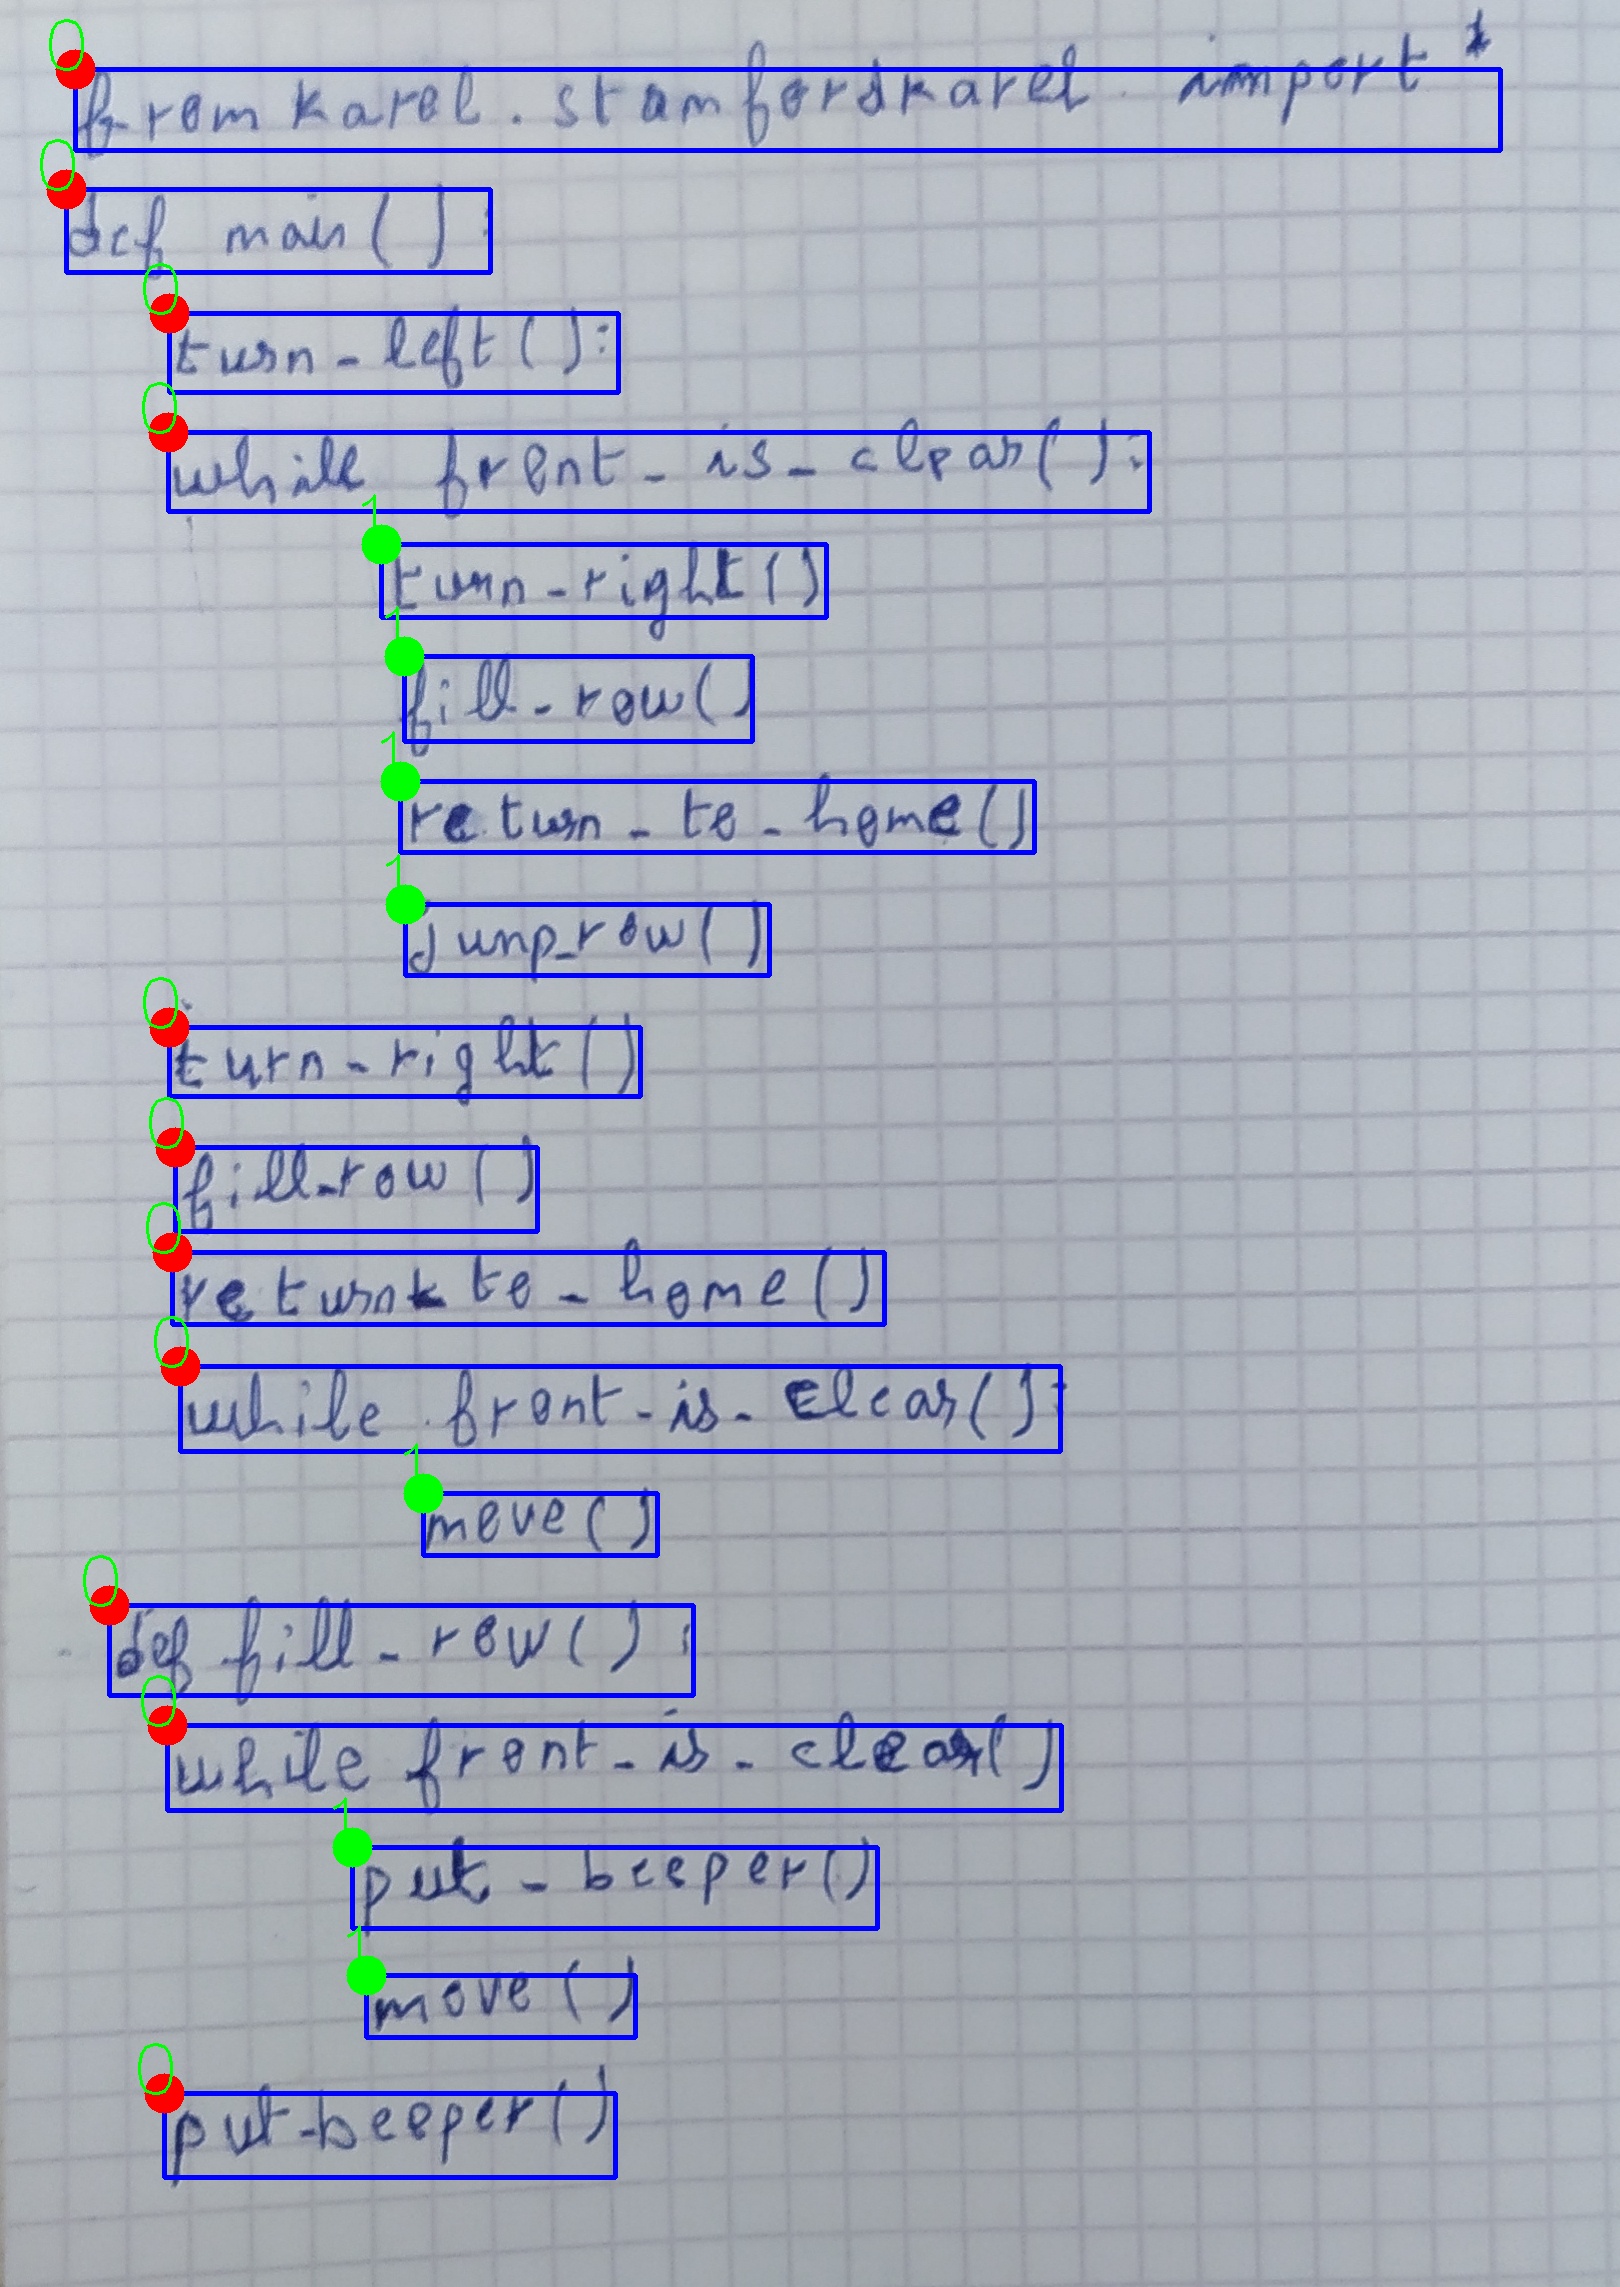 from karel.stamfordkarel import *
def main():
turn_left():
while front_is_clear():
turn_right()
fill_row()
return_to_home()
junp_row()
turn_right()
fill_row()
return_to_home()
while front_is_clear():
move()
def fill_row():
while front_is_clear()
put_beeper()
move()
put_beeper()